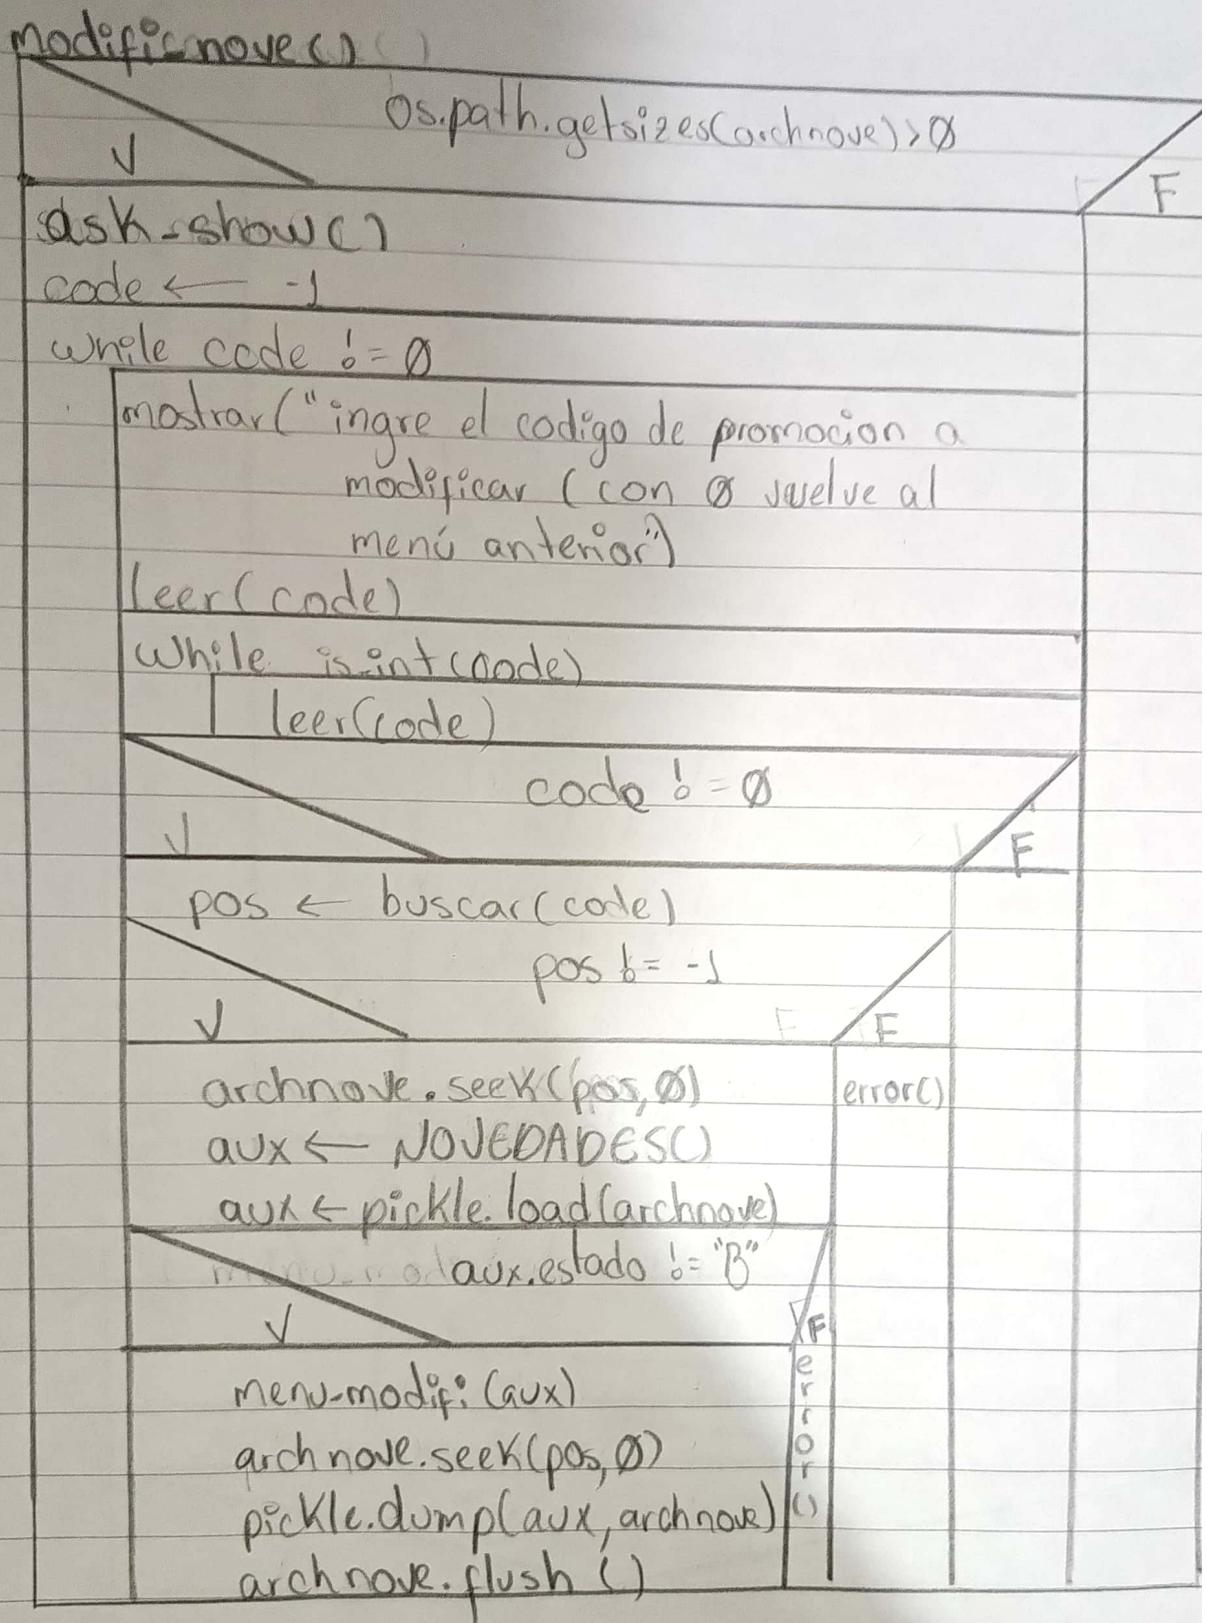 modificnove()
os.path.getsizes(archnove)>0
V F
ask-show()
code ← -1
while code != 0
mostrar("ingre el codigo de promocion a
modificar (con 0 vuelve al
menú anterior")
leer(code)
while is-int(code)
leer(code)
code != 0
V F
pos ← buscar(code)
pos != -1
V F
archnove.seek(pos,0) error()
aux ← NOVEDADES()
aux ← pickle.load(archnove)
aux.estado != "B"
V F
menu-modifi(aux) error()
archnove.seek(pos,0)
pickle.dump(aux, archnove)
archnove.flush()